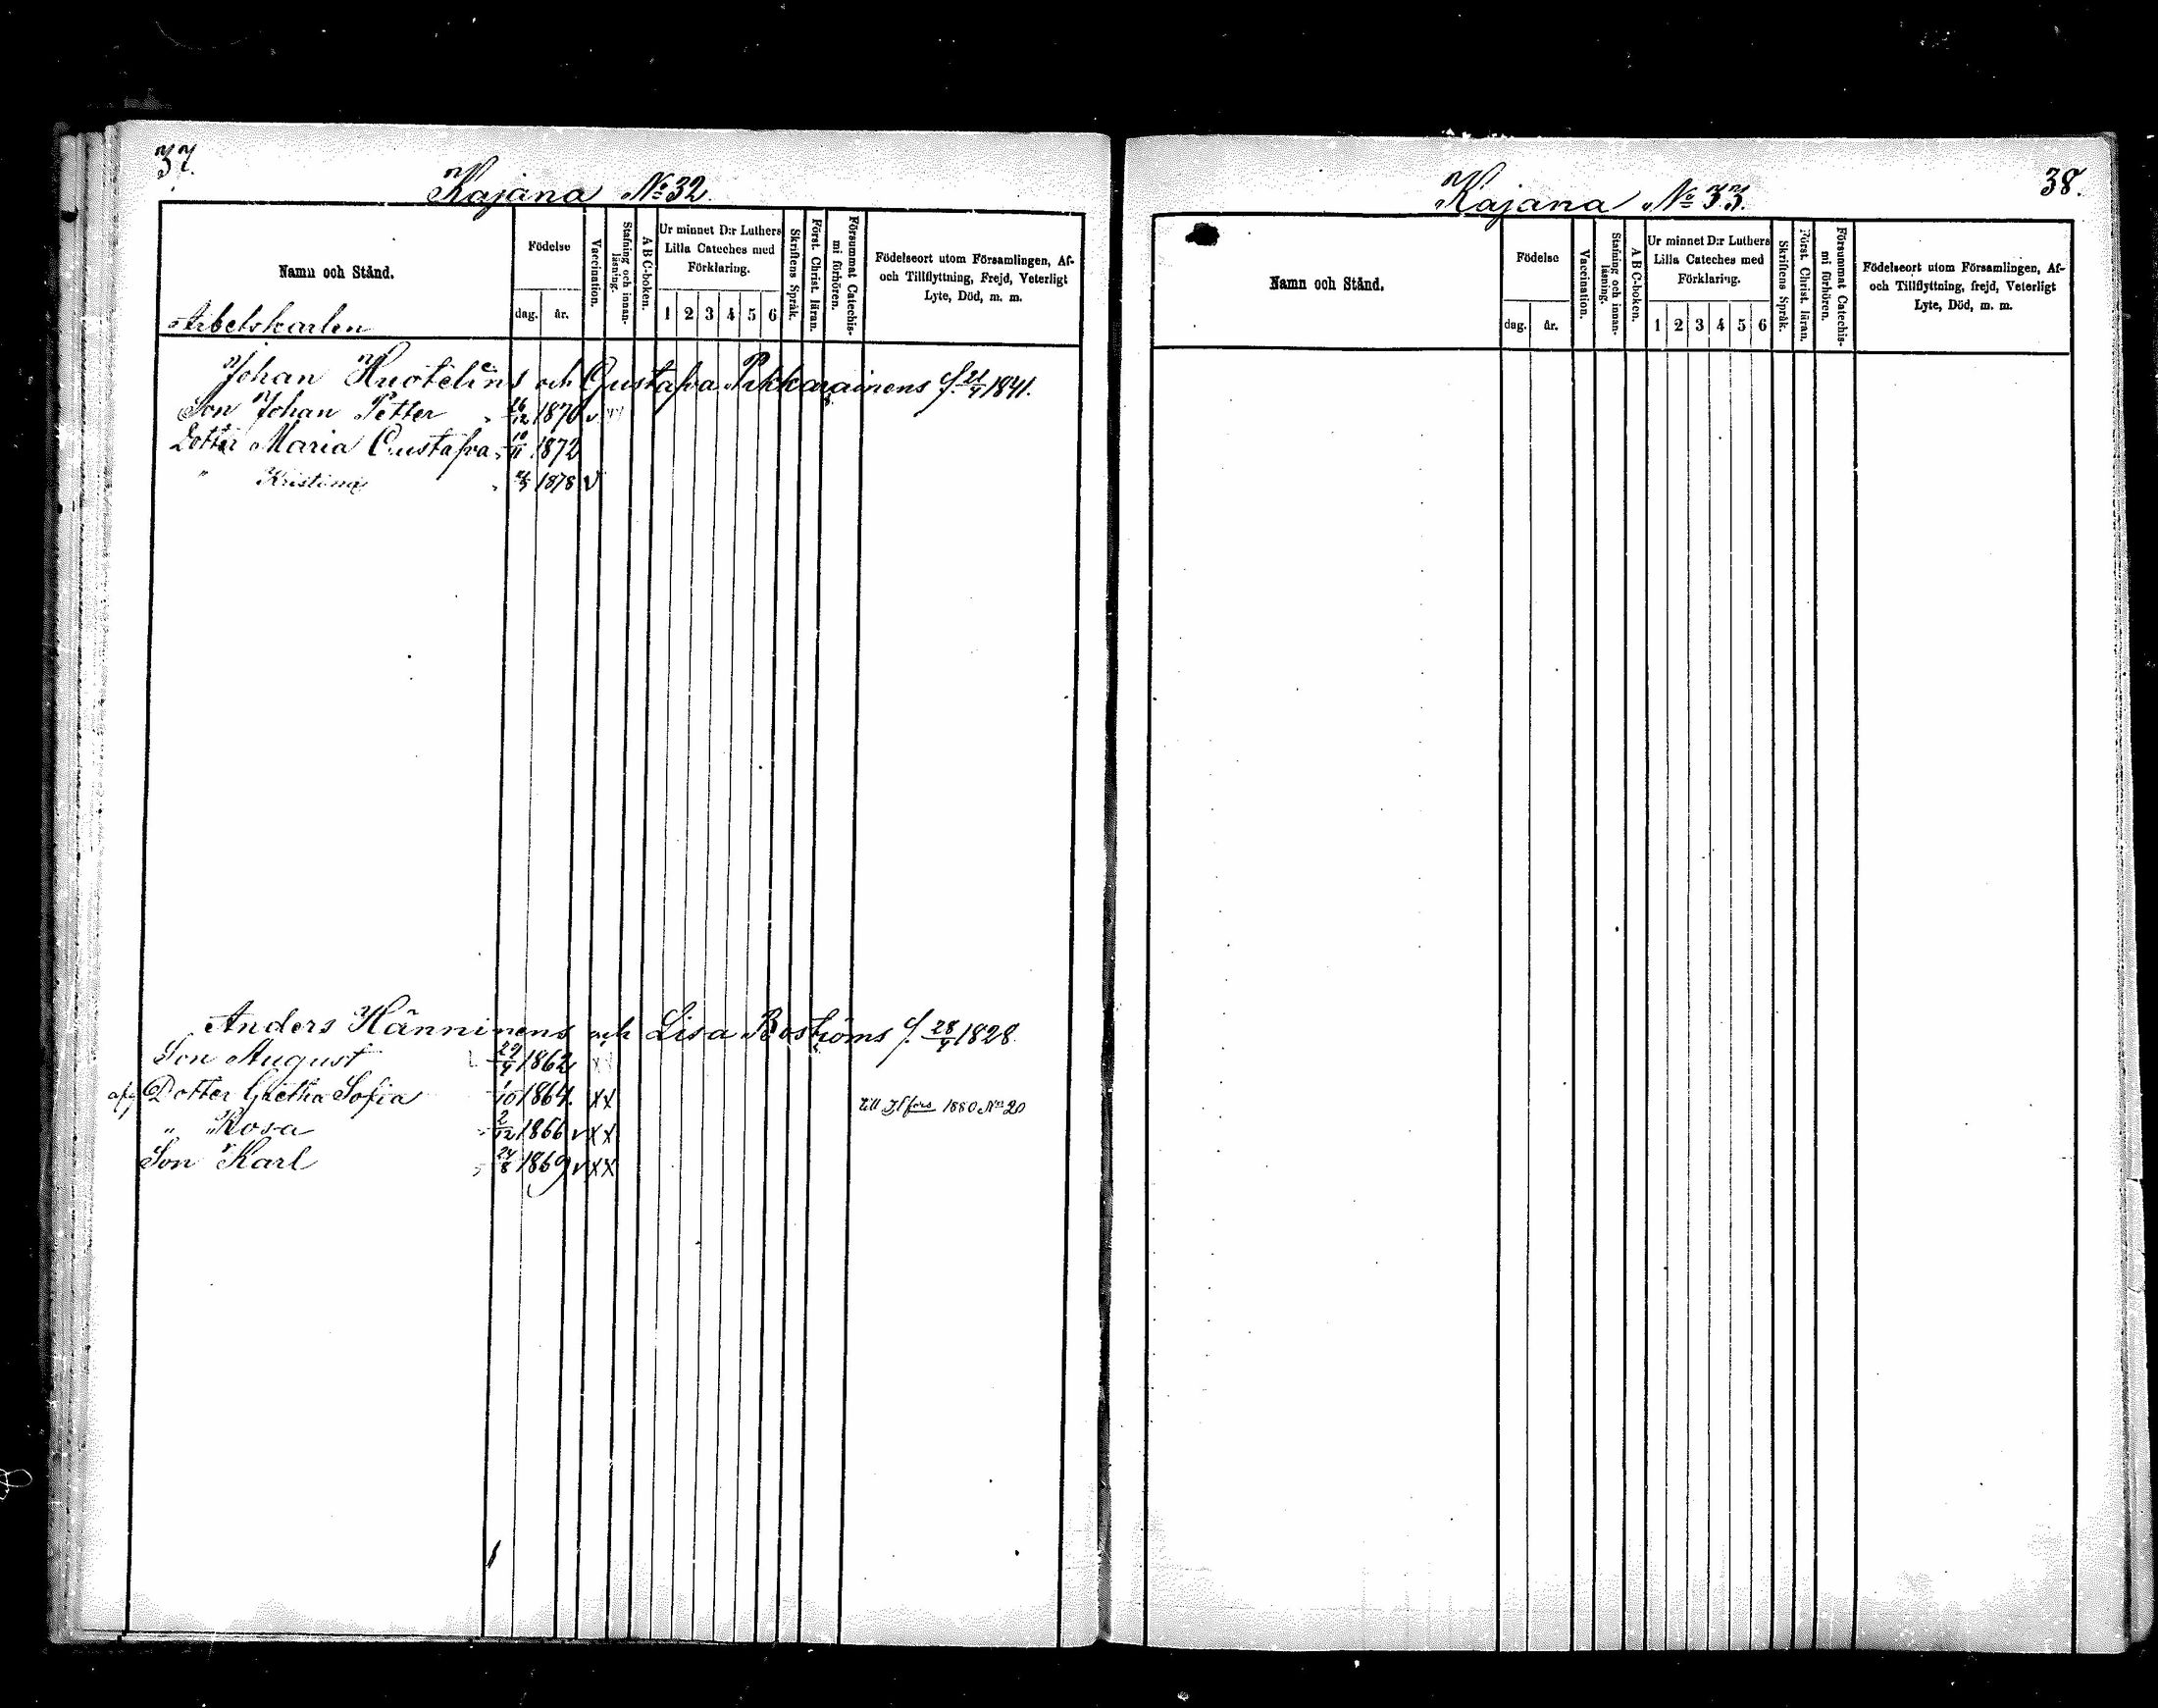 37.
Kajana No 32.
Namn och Stånd.
Födelse
dag. år.
Vaccination.
Stafning och innanläsning.
A B C-boken.
Ur minnet D:r Luthers Lilla Cateches med Förklaring.
1 2 3 4 5 6
Skriftens Språk.
Först. Christ. läran.
Försummat Catechismi förhören.
Födelseort utom Församlingen, Af-
och Tillflyttning, Frejd, Veterligt
Lyte, Död, m. m.
Arbetskarlen
Johan Huotelins och Gustafva Pikkarainens f. 1841.
Son Johan Petter 26/12 1870 v
Dotter Maria Gustafva 10/11 1872
" Kristina 1878 v
Anders Hänninens och Lisa Boströms f. 28/9 1828.
Son August 29/9 1862 x x
afg Dotter Gretha Sofia 1/10 1864. x x till Hfors 1880 No 20
" Rosa 2/12 1866 v x x
Son Karl 24/8 1869 v x x
38.
Kajana No 33.
Namn och Stånd.
Födelse
dag. år.
Vaccination.
Stafning och innanläsning.
A B C-boken.
Ur minnet D:r Luthers Lilla Cateches med Förklaring.
1 2 3 4 5 6
Skriftens Språk.
Först. Christ. läran.
Försummat Catechismi förhören.
Födelseort utom Församlingen, Af-
och Tillflyttning, frejd, Veterligt
Lyte, Död, m. m.